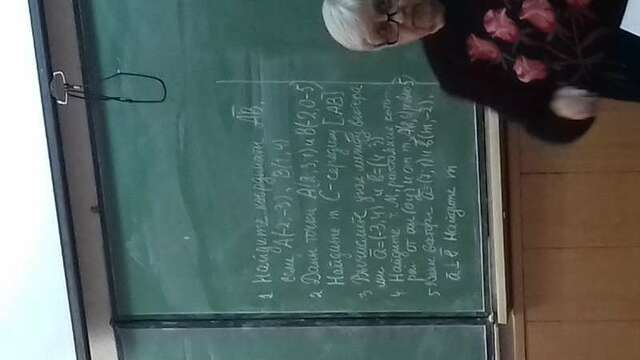 1. Найдите координаты AB,
если A(-2,-3), B(1,4)
2. Даны точки A(2,3,1) и B(-2,0-5)
Найдите т. C-середину [AB]
3. Вычислите угол между векто
рами a=(-3,4) и b=(4,3)
4. Найдите т. M, расстояние кото
рой от ои (oy) и от т.
5. Даны векторы a=(7,1) и b(m,-2),
a⊥b Найдите m